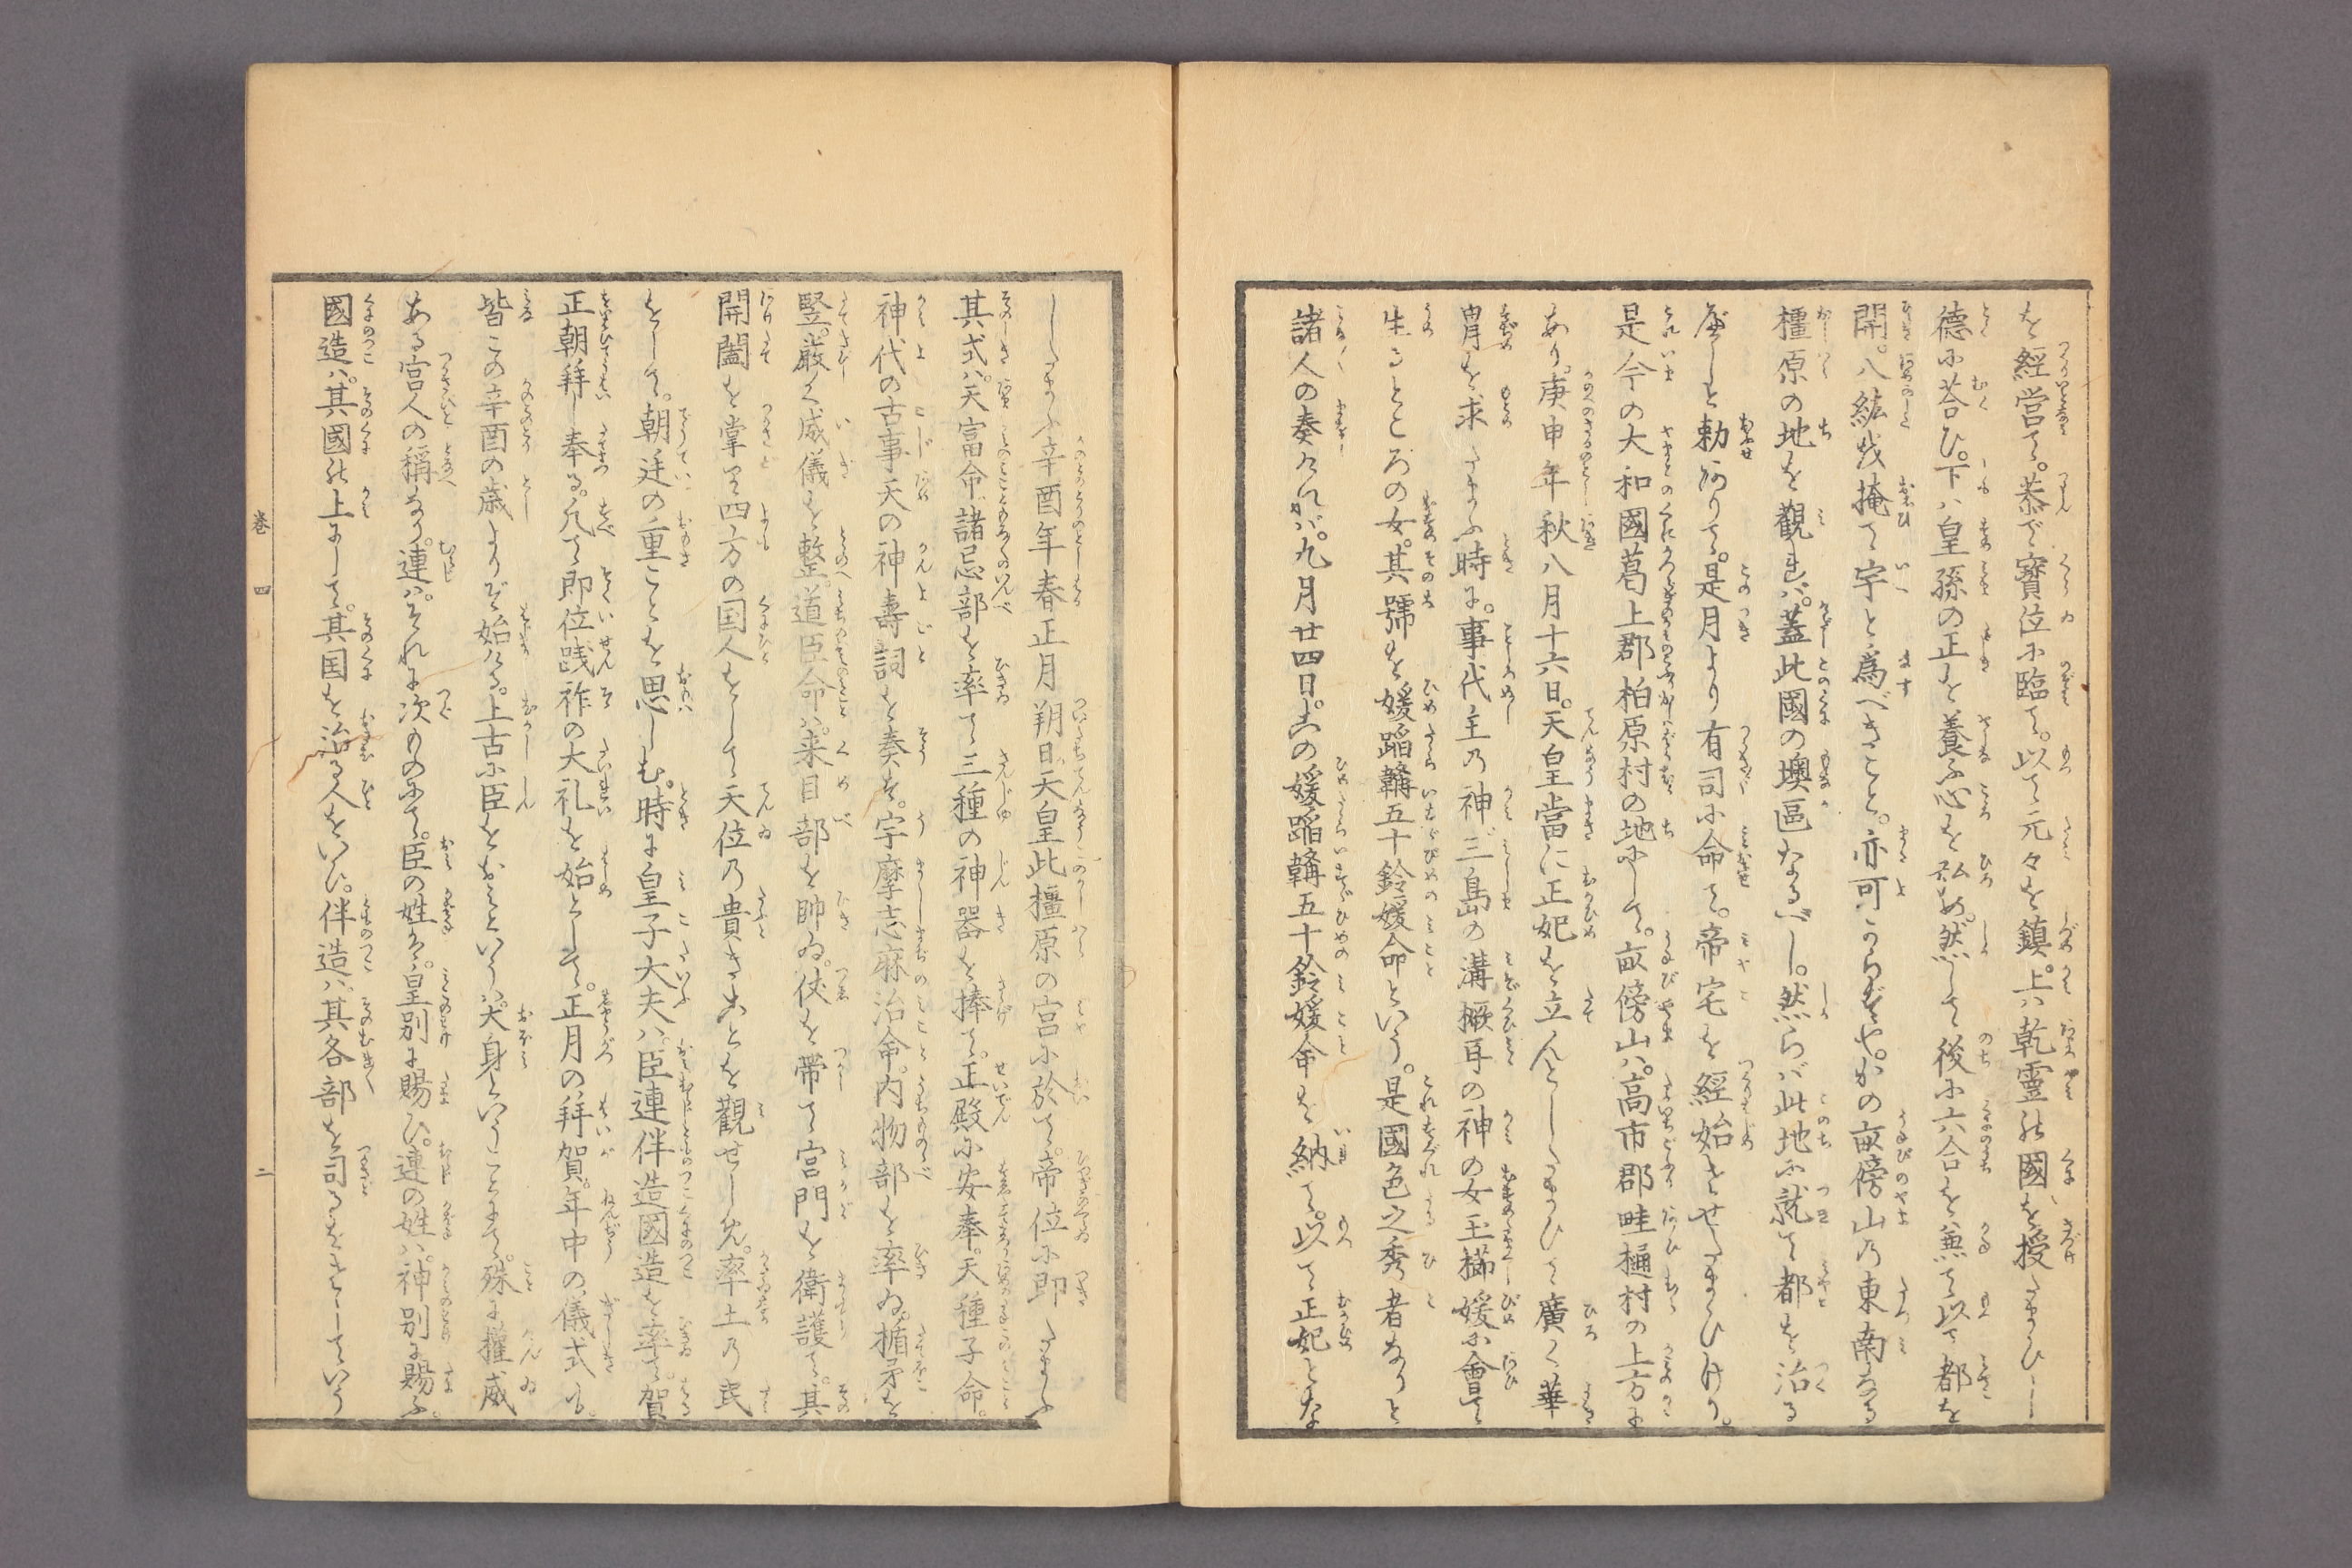 を経営て。恭で寶位に臨て。以て元々を鎮。上ハ乾霊の國を授たまひし
徳に荅ひ。下ハ皇孫の正を養ふ心を弘め。然して後に六合を兼て以て都を
開。八紘を掩て宇と為べきこと。亦可からずや。かの畝傍山乃東南なる
橿原の地を觀れば。蓋此國の墺區なるべし。然らば此地に就て都を治る
べしと勅ありて。是月より有司に命て。帝宅を経始させたまひけり。
是今の大和國葛上郡柏原村の地にして。畝傍山ハ。高市郡畦樋村の上方に
あり。庚申年秋八月十六日。天皇當に正妃を立んとしたまひて廣く華
冑を求たまふ時に。事代主乃神三島の溝橛耳の神の女玉櫛媛に會て
生るところの女。其號を媛蹈鞴五十鈴媛命といふ。是國色之秀者なりと
諸人の奏ければ。九月廿四日。この媛蹈鞴五十鈴媛命を納て。以て正妃とな
したまふ辛酉年春正月朔日。天皇此橿原の宮に於て。帝位に即たまふ
其式ハ。天富命諸忌部を率て三種の神器を捧て。正殿に安奉。天種子命。
神代の古事天の神壽詞を奏す。宇摩志麻治命。内物部を率ゐ。楯矛を
竪。厳く威儀を整。道臣命ハ。来目部を帥ゐ。仗を帯て宮門を衛護て。其
開闔を掌て四方の国人をして天位乃貴きことを觀せしめ。率土乃民
をして。朝廷の重ことを思しむ。時に皇子大夫ハ。臣連伴造國造を率て賀
正朝拜し奉る。凡て即位践祚の大礼を始として。正月の拜賀。年中の儀式も。
皆この辛酉の歳よりぞ始れる。上古に臣をおみといふハ。大身といふことにて。殊に權威
ある宮人の稱なり。連ハ。それに次ものにて。臣の姓ハ。皇別に賜ひ。連の姓ハ。神別に賜ふ。
國造ハ。其國の上にして。其国を治る人をいひ。伴造ハ。其各部を司るをさしていふ
巻四
二